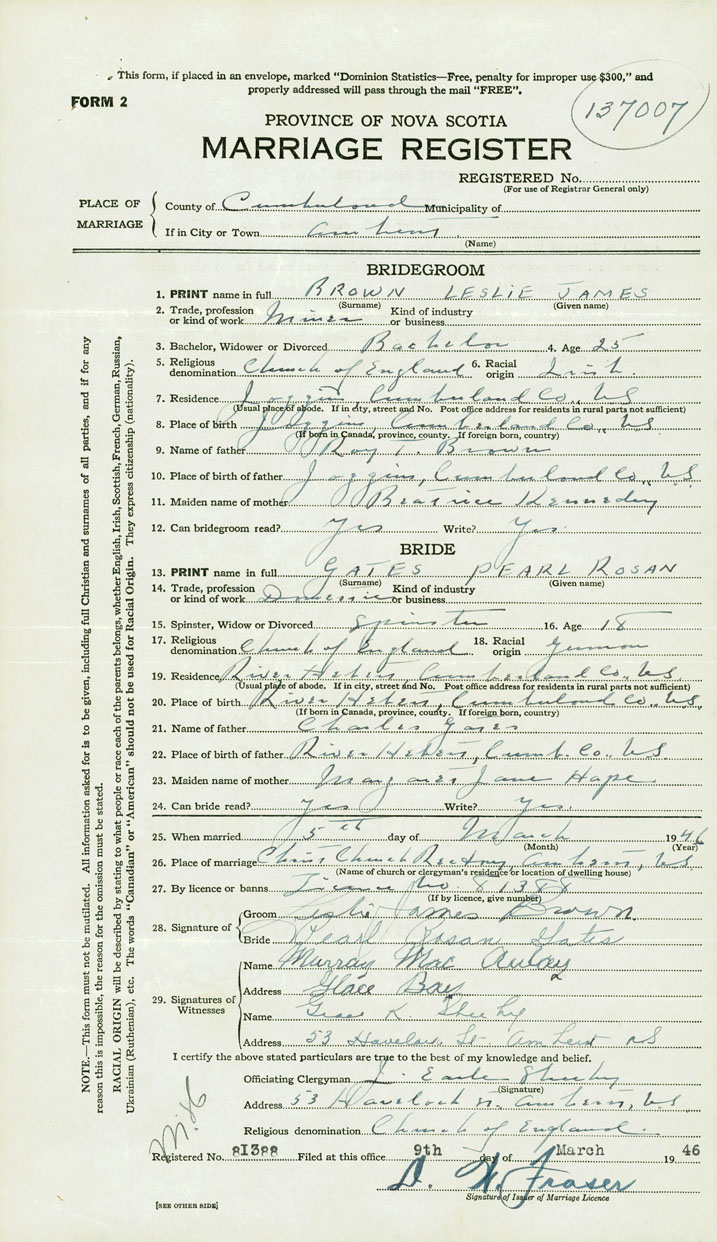 This form, if placed in an envelope, marked "Dominion Statistics—Free, penalty for improper use $300," and
properly addressed will pass through the mail "FREE".
FORM 2
137007
PROVINCE OF NOVA SCOTIA
MARRIAGE REGISTER
REGISTERED No.
(For use of Registrar General only)
PLACE OF MARRIAGE
County of Cumberland Municipality of
If in City or Town Amherst
(Name)
BRIDEGROOM
1. PRINT name in full BROWN LESLIE JAMES
(Surname) (Given name)
2. Trade, profession or kind of work Miner Kind of industry or business
3. Bachelor, Widower or Divorced Bachelor 4. Age 25
5. Religious denomination Church of England 6. Racial origin Irish
7. Residence Joggins, Cumberland Co., N.S.
(Usual place of abode. If in city, street and No. Post office address for residents in rural parts not sufficient)
8. Place of birth Joggins, Cumberland Co., N.S.
(If born in Canada, province, county. If foreign born, country)
9. Name of father Roy T. Brown
10. Place of birth of father Joggins, Cumberland Co., N.S.
11. Maiden name of mother Beatrice Kennedy
12. Can bridegroom read? Yes Write? Yes
BRIDE
13. PRINT name in full GATES PEARL ROSAN
(Surname) (Given name)
14. Trade, profession or kind of work Domestic Kind of industry or business
15. Spinster, Widow or Divorced Spinster 16. Age 18
17. Religious denomination Church of England 18. Racial origin German
19. Residence River Hebert, Cumberland Co., N.S.
(Usual place of abode. If in city, street and No. Post office address for residents in rural parts not sufficient)
20. Place of birth River Hebert, Cumberland Co., N.S.
(If born in Canada, province, county. If foreign born, country)
21. Name of father Charles Gates
22. Place of birth of father River Hebert, Cumb. Co., N.S.
23. Maiden name of mother Margaret Jane Hape
24. Can bride read? Yes Write? Yes.
25. When married 5th day of March 1946
(Month) (Year)
26. Place of marriage Christ Church Rectory, Amherst, N.S.
(Name of church or clergyman's residence or location of dwelling house)
27. By licence or banns License No. 81388
(If by licence, give number)
28. Signature of
Groom Leslie James Brown
Bride Pearl Rosan Gates
29. Signatures of Witnesses
Name Murray Mac Aulay
Address Glace Bay
Name Grace K. Sheehy
Address 53 Havelock St Amherst NS
I certify the above stated particulars are true to the best of my knowledge and belief.
Officiating Clergyman J. Earle Sheehy
(Signature)
Address 53 Havelock St. Amherst, N.S.
Religious denomination Church of England.
Registered No. 81388 Filed at this office 9th day of March 19 46
D. W. Fraser
Signature of Issuer of Marriage Licence
[SEE OTHER SIDE]
NOTE.—This form must not be mutilated. All information asked for is to be given, including full Christian and surnames of all parties, and if for any
reason this is impossible, the reason for the omission must be stated.
RACIAL ORIGIN will be described by stating to what people or race each of the parents belongs, whether English, Irish, Scottish, French, German, Russian,
Ukrainian (Ruthenian), etc. The words "Canadian" or "American" should not be used for Racial Origin. They express citizenship (nationality).